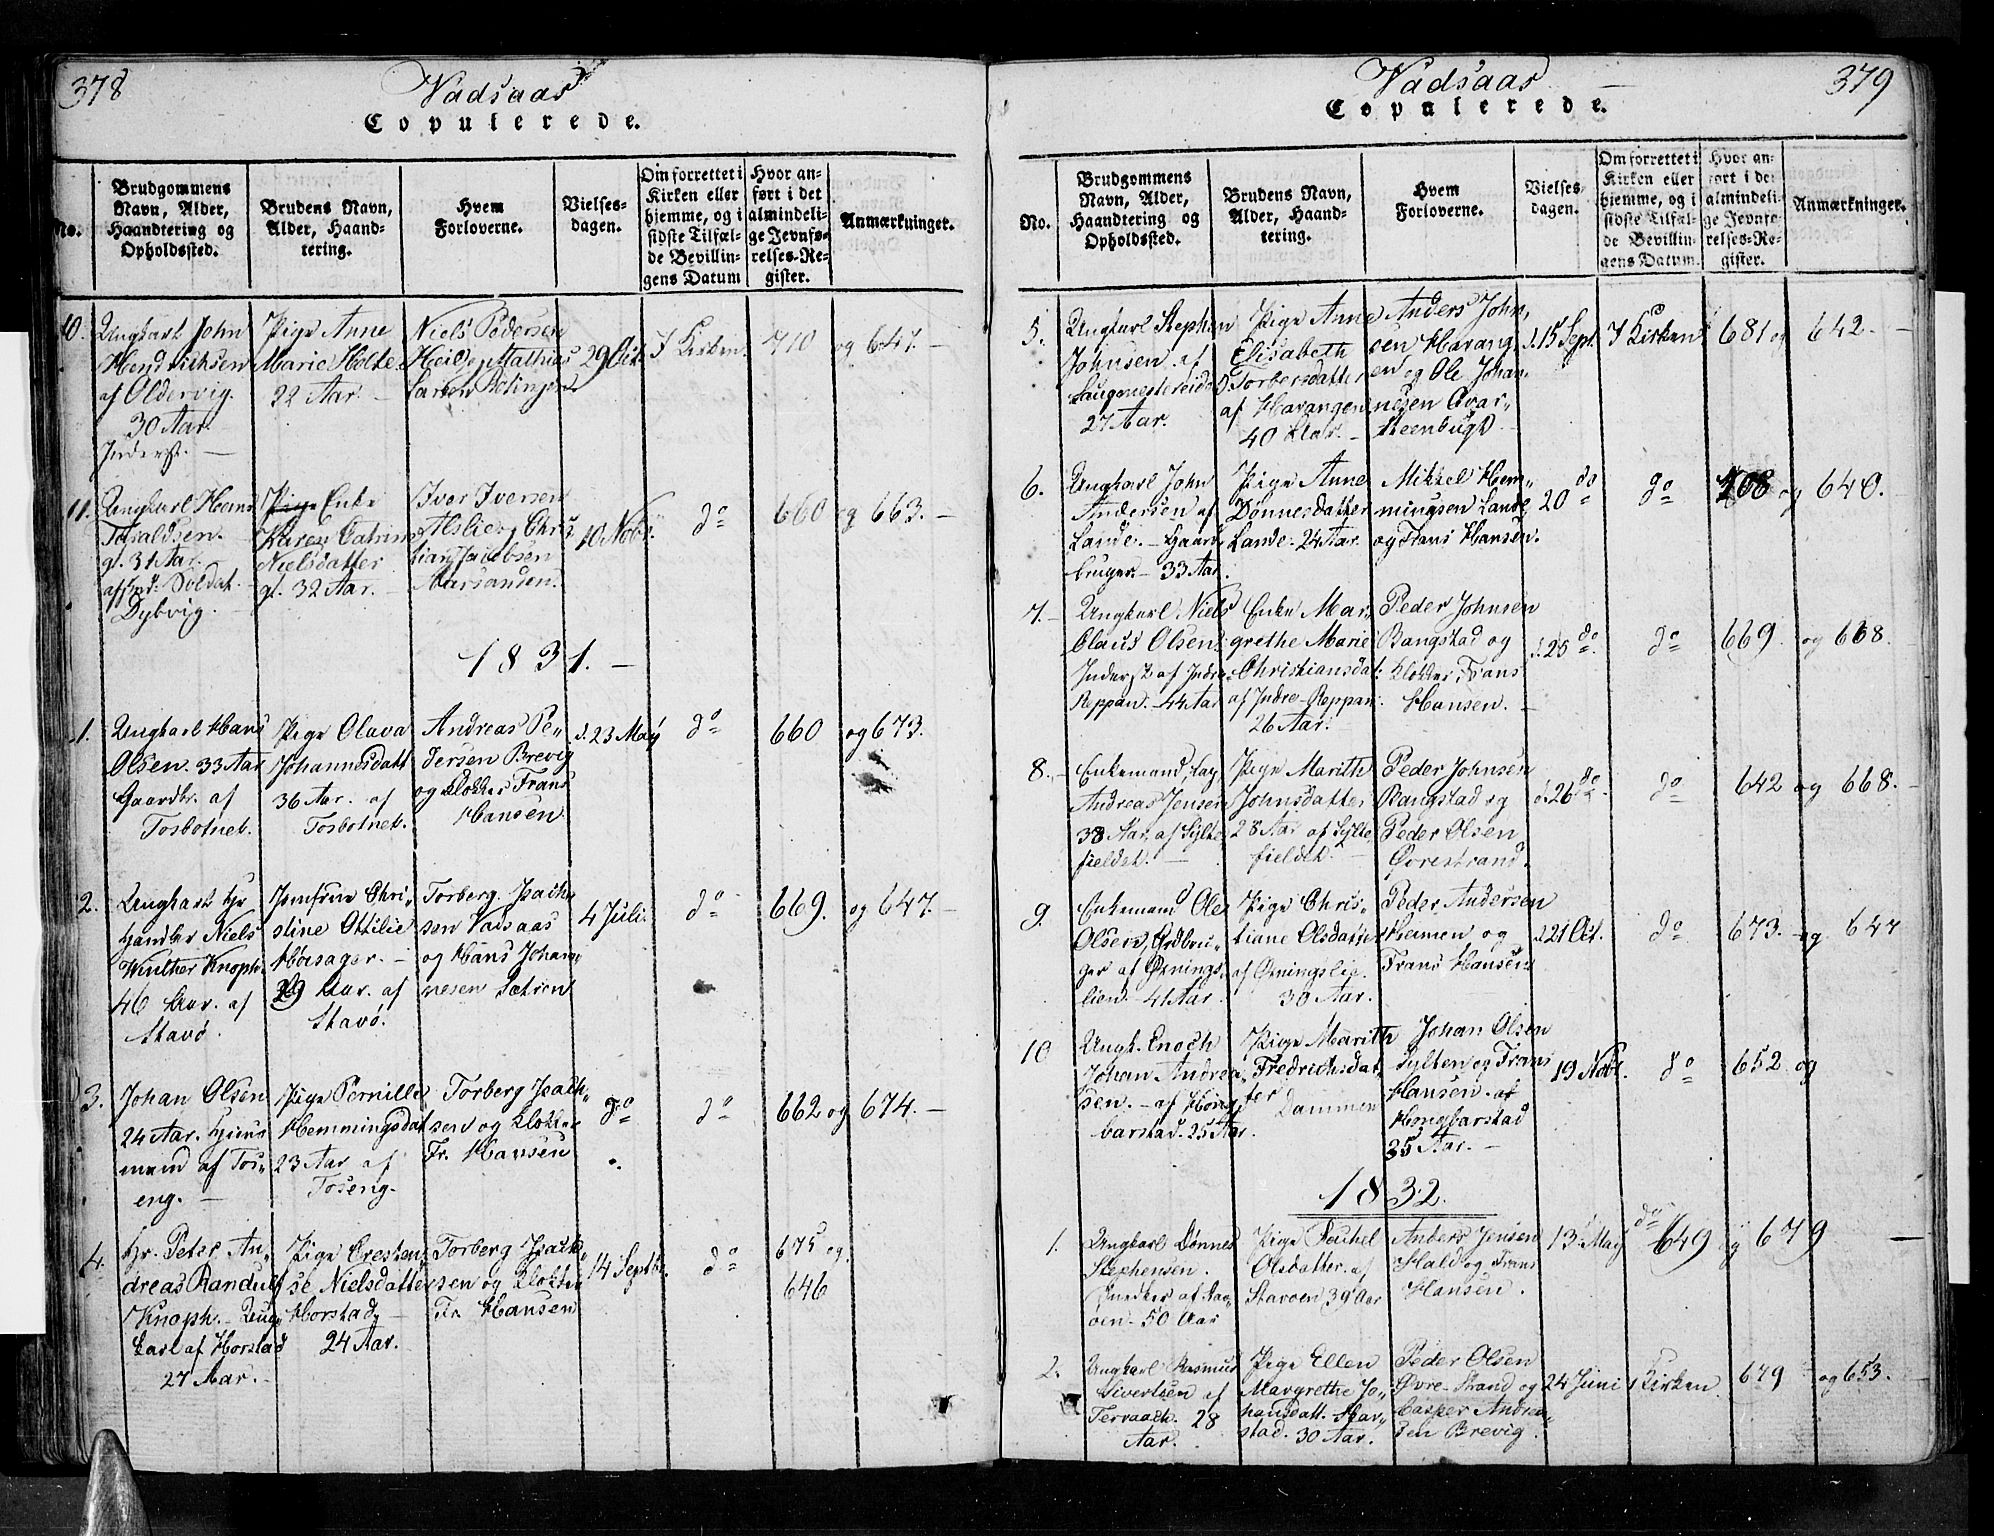 378
Vadsaas
Copulerede.
No.
Brudgommens
Navn, Alder,
Haandtering og
Opholdssted.
Brudens Navn,
Alder, Haand-
tering.
Hvem
Forloverne.
Vielses-
dagen.
Om forrettet i
Kirken eller
hjemme, og i
sidste Tilfæl-
de Bevillin-
gens Datum
Hvor an-
ført i det
almindeli-
ge Jevnfø-
relses-Re-
gister.
Anmærkninger.
10.
Ungkarl John
Hendrichsen
af Oldervig.
30 Aar
Inderst. -
Pige Anne
Marie Holte.
22 Aar.
Niels Pedersen
Heilsøe Mathias
Larsen
29 Oct.
I Kirken.
710
og 647. -
11.
Ungkarl Hans
Toraldsen.
gl. 31 Aar.
Soldat.
Dybvig. -
Pige Enke
Karen Catrine
Nielsdatter
gl. 32 Aar. -
Iver Iversen
Alsberg Chris
tian Jacobsen
Aarsanden.
10 Nobr.
do
660
og 663. -
1831. -
1.
Ungkarl Hans
Olsen. 33 Aar
Gaardbr. af
Tosbotnet.
Pige Olava
Johannesdatt
36 Aar. af
Tosbotnet.
Andreas Pe-
dersen Brevig
og Klokker Frans
Hansen
d. 23 May
do
660
og 673.
2.
Ungkarl Hr
Handler Niels
Winther Knoph.
46 Aar. af
Stavø.
Jomfrue Chri-
stine Ottilie
Horsager. -
29 Aar. af
Stavø.
Torberg Isach-
sen Vadsaas
og Hans Johan-
nesen Sætren
4 Juli.
do
669.
og 647. -
3.
Johan Olsen
24 Aar. Huus
mand af Tos-
eng. -
Pige Pernille
Hemmingsdat
23 Aar af
Toseng.
Torberg Isach-
sen og Klokker
Fr. Hansen
do
do
662 og
674. -
4.
Hr. Peter An-
dreas Randulf
Knoph. - Ung-
karl af Horstad
27 Aar. -
Pige Cresten-
se Nielsdatter
Horstad
24 Aar.
Torberg Isach-
sen og Klokker
Fr. Hansen
14 Septbr.
do
675 og
646
379
Vadsaas
Copulerede.
No.
Brudgommens
Navn, Alder,
Haandtering og
Opholdssted.
Brudens Navn,
Alder, Haand-
tering.
Hvem
Forloverne.
Vielses-
dagen.
Om forrettet i
Kirken eller
hjemme, og i
sidste Tilfæl-
de Bevillin-
gens Datum.
Hvor an-
ført i det
almindeli-
ge Jevnfø-
relses-Re-
gister.
Anmærkninger.
5.
Ungkarl Stephen
Johnsen af
27 Aar.
Pige Anne
Elisabeth
Torbersdatter
af Harangen
40 Aar. -
Anders John-
sen Harang-
en og Ole Johan-
nesen Qvar-
steenbugt
d. 15 Sept.
I Kirken
681 og
642. -
6.
Ungkarl John
Andersen af
Lande. - Gaard
bruger. - 33 Aar.
Pige Anne
Dønnesdatter
Lande. 24 Aar
Mikkel Hem-
mingsen Lande
og Frans Hansen.
20 do
do
708 og
640.
7. -
Ungkarl Niels
Claus Olsen.
Inderst af Indre
Reppan. 44 Aar
Enke Mar-
grethe Marie
Christiansdat:
af Indre Reppan.
26 Aar.
Peder Johnsen
Bangstad og
Klokker Frans
Hansen. -
d. 25 do.
do
669.
og 668.
8. -
Enkemand,
Andreas Jensen
38 Aar. af Sylte-
fieldet. -
Pige Marith
Johnsdatter
28 Aar af Sylte
fieldet. -
Peder Johnsen
Bangstad og
Peder Olsen
Øvrestrand.
d. 26 do.
do
642
og 668. -
9.
Enkemand Ole
Olsen, Ordbru-
ger af Ørnings-
lien. - 41 Aar.
Pige Chris-
tiane Olsdatter
af Ørningslie.
30 Aar.
Peder Andersen
Heimen og
Frans Hansen
d. 21 Oct.
do
673. -
og 647
10
Ungk. Enoch
Johan Andrea-
sen. - af Høng-
barstad. 25 Aar.
Pige Marith
Fredrichsdat-
ter
Dammen
Johan Olsen
Sylten og Frans
Hansen. af
Hongbarstad
35 Aar. -
19 Nobr.
do
652
og
1832.
1.
Ungkarl Dønnes
Stephensen.
50 Aar
Pige Rachel
Olsdatter. af
Stavøen 39 Aar
Anders Jensen
Hald og Frans
Hansen.
13 May
do
649
og 679 -
2.
Ungkarl Rasmus
Sivertsen af
Tervaack. 28
Aar.
Pige Ellen
Margrethe Jo-
hansdatt. Hor-
stad. 30 Aar.
Peder Olsen
Øvre-Strand og
Casper Andrea-
sen Brevig.
24 Juni
i Kirken
679
og 653.